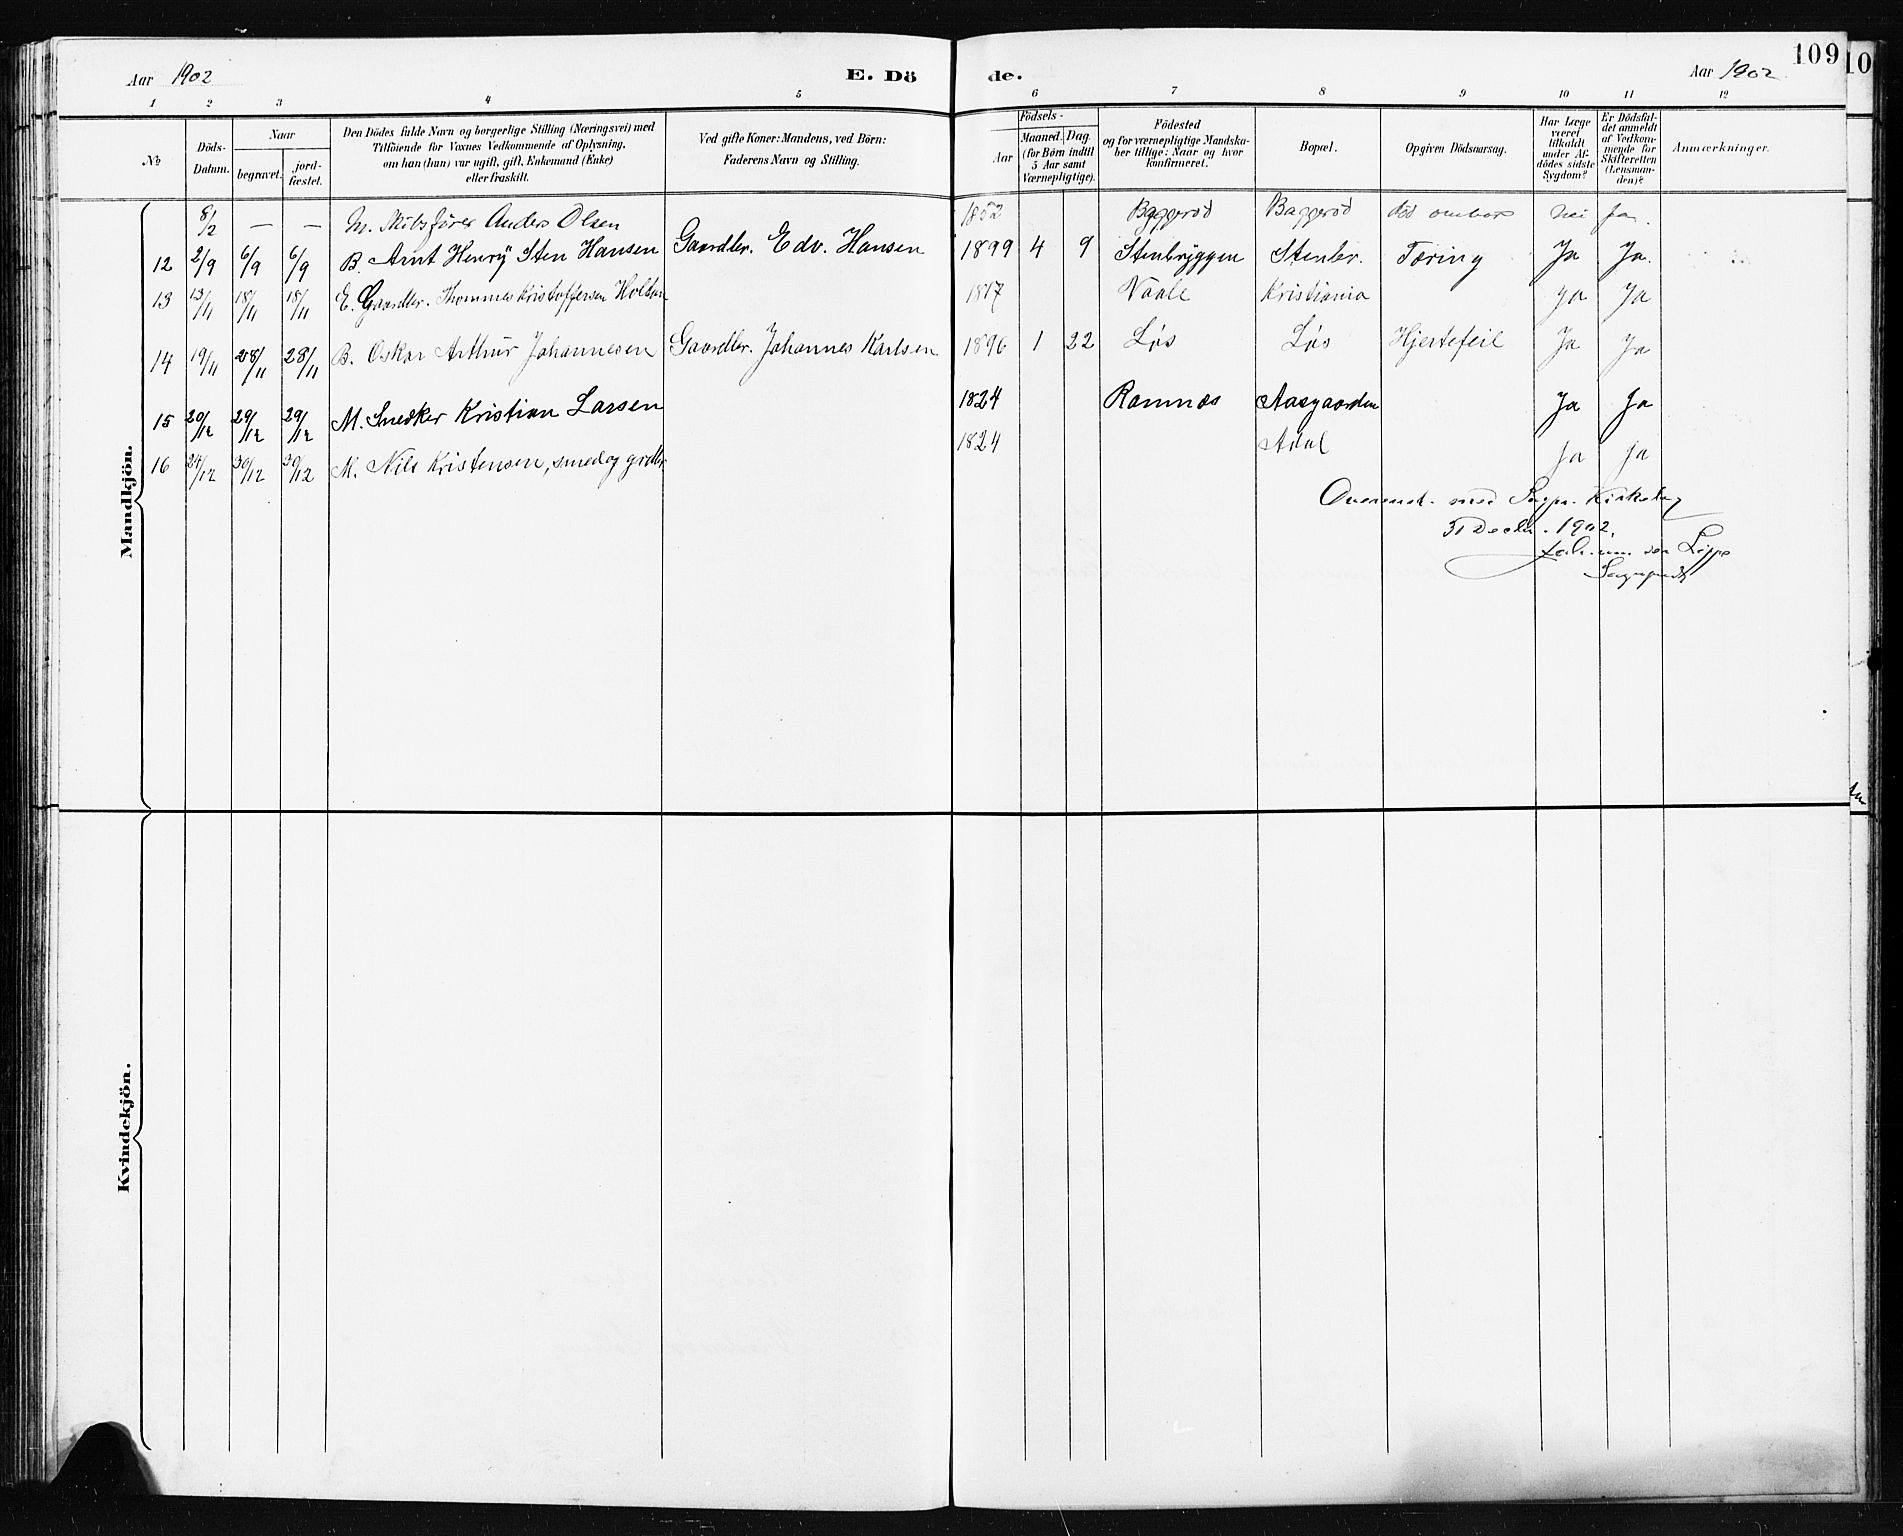 109
Aar 1902 E. Dö de. Aar 1902
1 2 3 4 5 6 7 8 9 10 11 12
No
Döds-Datum.
Naar
begravet.
jord-fæstet.
Den Dödes fulde Navn og borgerlige Stilling (Næringsvei) med
Tilföiende for Voxnes Vedkommende af Oplysning,
om han (hun) var ugift, gift, Enkemand (Enke)
eller fraskilt.
Ved gifte Koner: Mandens, ved Börn:
Faderens Navn og Stilling.
Födsels-
Aar
Maaned. Dag.
(for Börn indtil
5 Aar samt
Værnepligtige).
Födested
og for værnepligtige Mandska-
ber tillige: Naar og hvor
konfirmeret.
Bopæl.
Opgiven Dödsaarsag.
Har Læge
været
tilkaldt
under Af-
dödes sidste
Sygdom?
Er Dödsfal-
det anmeldt
af Vedkom-
mende for
Skifteretten
(Lensman-
den)?
Anmærkninger.
Mandkjön.
8/2 — — M. Skibsfører Anders Olsen 1852 Baggerød Baggerød død ombord Nei Ja.
12 2/9 6/9 6/9 B. Arnt Henrÿ Sten Hansen Gaardbr. Edv. Hansen 1899 4 9 Stenbryggen Stenbr. Tæring Ja Ja.
13 13/11 18/11 18/11 E. Gaardbr. Thommes Kristoffersen Holtan 1817 Vaale Kristiania Ja Ja
14 19/11 28/11 28/11 B. Oskar Arthur Johannesen Gaardbr. Johannes Karlsen 1896 1 22 Løs Løs Hjertefeil Ja Ja
15 20/12 29/12 29/12 M. Snedker Kristian Larsen 1824 Ramnæs Aasgaarden Ja Ja
16 24/12 30/12 30/12 M. Nils Kristensen, smed og grdbr. 1824 Adal Ja Ja
Overenst. med Sogpr. Kirkebog
31 Decbr. 1902.
von der Lippe
Sogneprest
Kvindekjön.